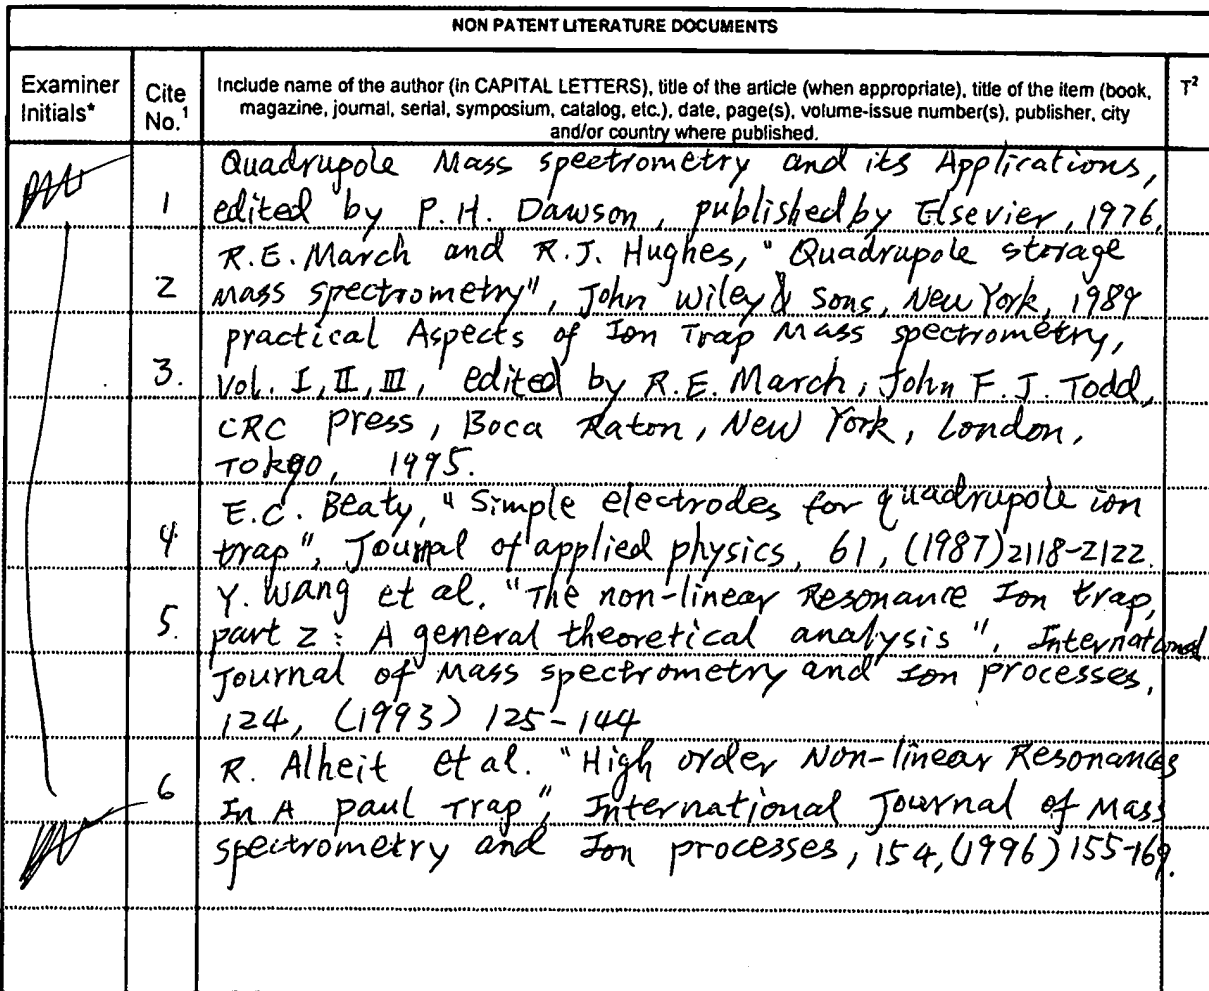 NON PATENT LITERATURE DOCUMENTS
Examiner Initials*
Cite No.¹
Include name of the author (in CAPITAL LETTERS), title of the article (when appropriate), title of the item (book,
magazine, journal, serial, symposium, catalog, etc.), date, page(s), volume-issue number(s), publisher, city
and/or country where published.
T²
Quadrupole Mass spectrometry and its Applications,
1 edited by P.H. Dawson, published by Elsevier, 1976.
R.E. March and R.J. Hughes, "Quadrupole storage
2 mass spectrometry", John Wiley & Sons, New York, 1989
practical Aspects of Ion Trap Mass spectrometry,
3. Vol. I, II, III, edited by R.E. March, John F.J. Todd,
CRC Press, Boca Raton, New York, London,
Tokyo, 1995.
E.C. Beaty, "Simple electrodes for quadrupole ion
4 trap", Journal of applied physics, 61, (1987) 2118-2122.
Y. Wang et al. "The non-linear Resonance Ion trap,
5. part 2: A general theoretical analysis", International
Journal of Mass spectrometry and Ion processes,
124, (1993) 125-144
R. Alheit et al. "High order Non-linear Resonances
6 In A paul Trap", International Journal of Mass
spectrometry and Ion processes, 154, (1996) 155-169.